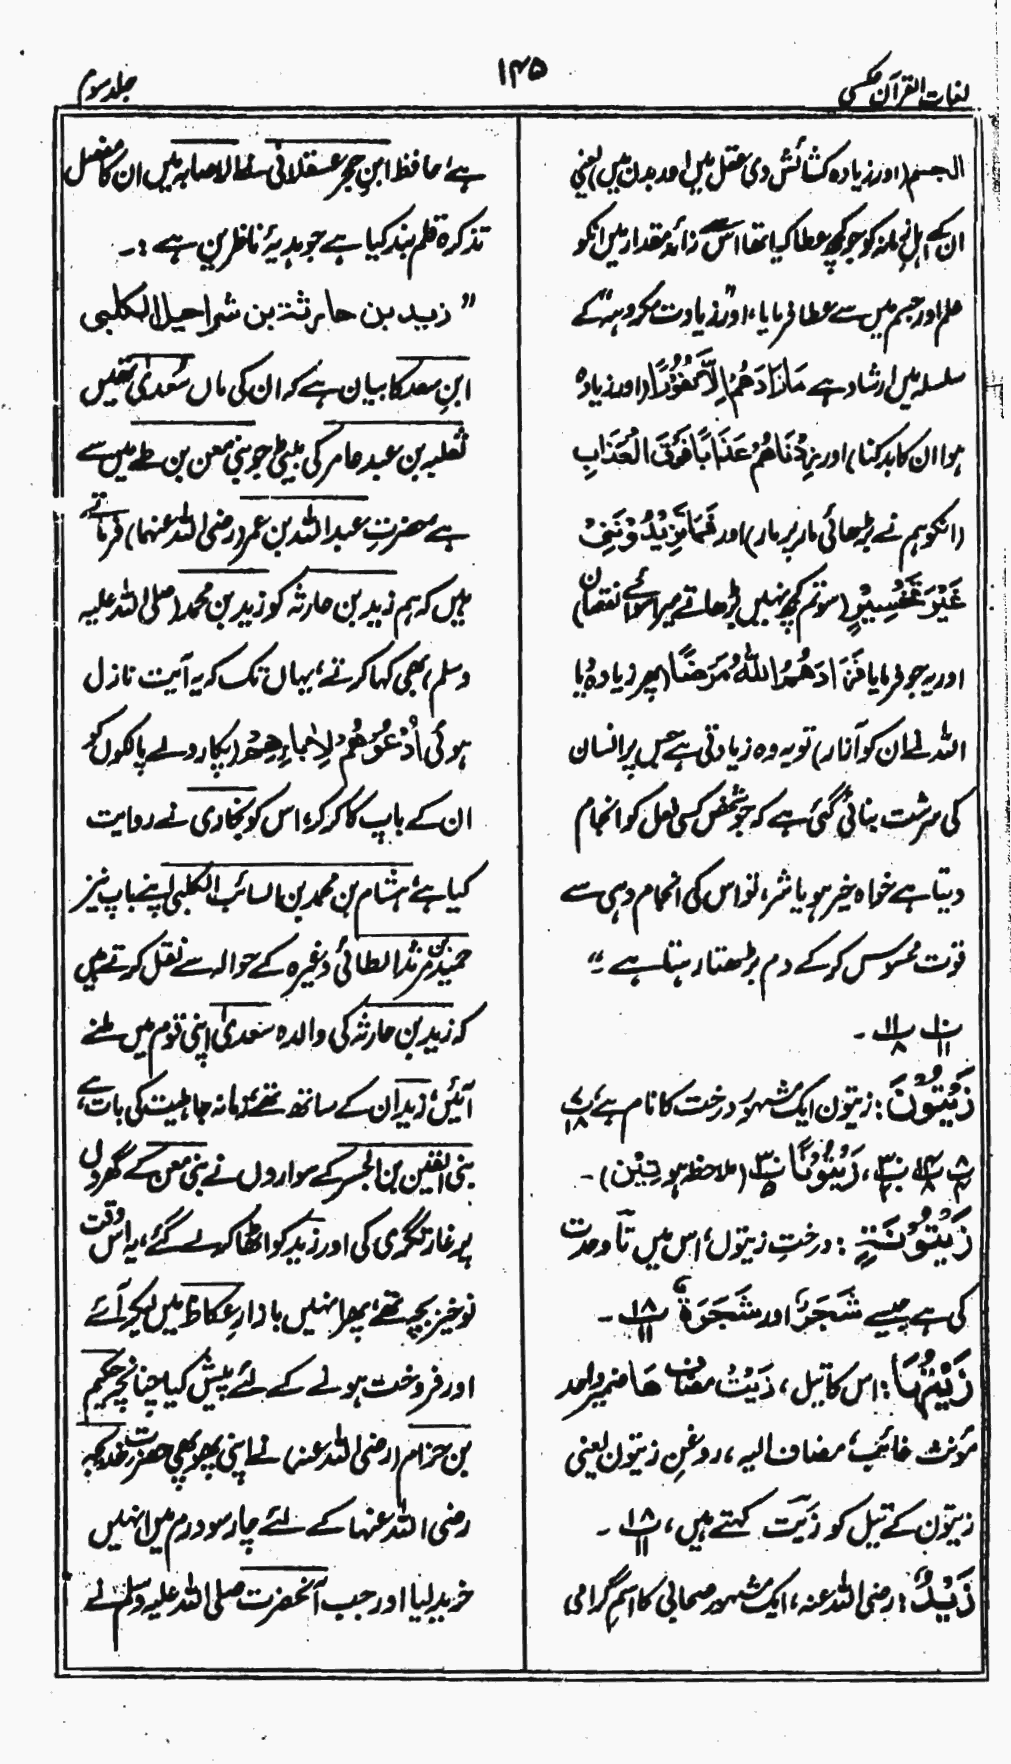 لغات القرآن عکسی
۱۴۵
جلد سوم
الجسم (اور زیادہ کشائش دی عقل میں اور بدن میں) یعنی
ان کے اہل زمانہ کو جو کچھ عطا کیا تھا اس سے زائد مقدار میں انکو
علم اور جسم میں سے عطا فرمایا، اور "زیادت مکروہہ" کے
سلسلہ میں ارشاد ہے مَا زَادَهُمْ اِلَّا نُفُوْرًا (اور زیادہ
ہوا ان کا بدکنا) اور زِدْنَاهُمْ عَذَابًا فَوْقَ الْعَذَابِ
(انکو ہم نے بڑھائی مار پر مار) اور فَمَا تَزِيْدُوْنَنِيْ
غَيْرَ تَخْسِيْرٍ (سو تم کچھ نہیں بڑھاتے میرا سوائے نقصان)
اور یہ جو فرمایا فَزَادَهُمُ اللّٰهُ مَرَضًا (پھر زیادہ دیا
اللہ نے ان کو آزار) تو یہ وہ زیادتی ہے جس پر انسان
کی سرشت بنائی گئی ہے کہ جو شخص کسی فعل کو انجام
دیتا ہے خواہ خیر ہو یا شر، تو اس کی انجام دہی سے
قوت محسوس کرکے دم بڑھتا رہتا ہے"
زَيْتُوْنَ: زیتون ایک مشہور درخت کا نام ہے،
زَيْتُوْنًا (ملاحظہ ہو تِیْن)۔
زَيْتُوْنَةٍ: درختِ زیتون، اس میں تآ وحدت
کی ہے جیسے شَجَرٌ اور شَجَرَةٌ ۱۸/۱۱۔
زَيْتُهَا: اس کا تیل، زَيْتُ مضاف هَا ضمیر واحد
مؤنث غائب، مضاف الیہ، روغنِ زیتون یعنی
زیتون کے تیل کو زَیت کہتے ہیں، ۱۸/۱۱۔
زَيْدٌ: رضی اللہ عنہ، ایک مشہور صحابی کا اسم گرامی
ہے، حافظ ابن حجر عسقلانی نے الاصابہ میں ان کا مفصل
تذکرہ قلم بند کیا ہے جو ہدیۂ ناظرین ہے :۔
"زيد بن حارثة بن شراحيل الكلبي
ابن سعد کا بیان ہے کہ ان کی ماں سُعدیٰ تھیں
ثعلبہ بن عبد عامر کی بیٹی جو بنی معن بن طے میں سے
ہے، حضرتِ عبداللہ بن عمر (رضی اللہ عنہما) فرماتے
ہیں کہ ہم زید بن حارثہ کو زید بن محمد (صلی اللہ علیہ
وسلم) ہی کہا کرتے، یہاں تک کہ یہ آیت نازل
ہوئی اُدْعُوْهُمْ لِاٰبَآئِهِمْ (پکارو لے پالکوں کو
ان کے باپ کا کرکر) اس کو بخاری نے روایت
کیا ہے، ہشام بن محمد بن السائب الکلبی اپنے باپ نیز
حمید بن مرثد الطائی وغیرہ کے حوالہ سے نقل کرتے ہیں
کہ زید بن حارثہ کی والدہ سعدیٰ اپنی قوم میں ملنے
آئیں، زید ان کے ساتھ تھے، زمانہ جاہلیت کی بات ہے،
بنی القین بن الجسر کے سواروں نے بنی معن کے گھروں
پر غارتگری کی اور زید کو اٹھا کر لے گئے، یہ اس وقت
نوخیز بچہ تھے، پھر انہیں بازارِ عکاظ میں لیکر آئے
اور فروخت ہونے کے لئے پیش کیا چنانچہ حکیم
بن حزام (رضی اللہ عنہ) نے اپنی پھوپھی حضرت خدیجہ
رضی اللہ عنہا کے لئے چار سو درم میں انہیں
خرید لیا اور جب آنحضرت صلی اللہ علیہ وسلم نے